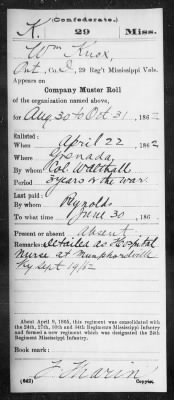 (Confederate.)
K. 29 Miss.
Wm Knox,
Pvt, Co. I, 29 Reg't Mississippi Vols.
Appears on
Company Muster Roll
of the organization named above,
for Aug 30 to Oct 31, 1862
Enlisted:
When April 22 1862
Where Grenada
By whom Col. Walthall
Period 3 years or the war.
Last paid:
By whom Reynolds
To what time June 30, 186
Present or absent absent
Remarks: Detailed as Hospital
Nurse at Munfordsville
Ky Sept 19/62
About April 9, 1865, this regiment was consolidated with
the 24th, 27th, 30th and 34th Regiments Mississippi Infantry
and formed a new regiment which was designated the 24th
Regiment Mississippi Infantry.
Book mark:
J Marin
(642) Copyist.